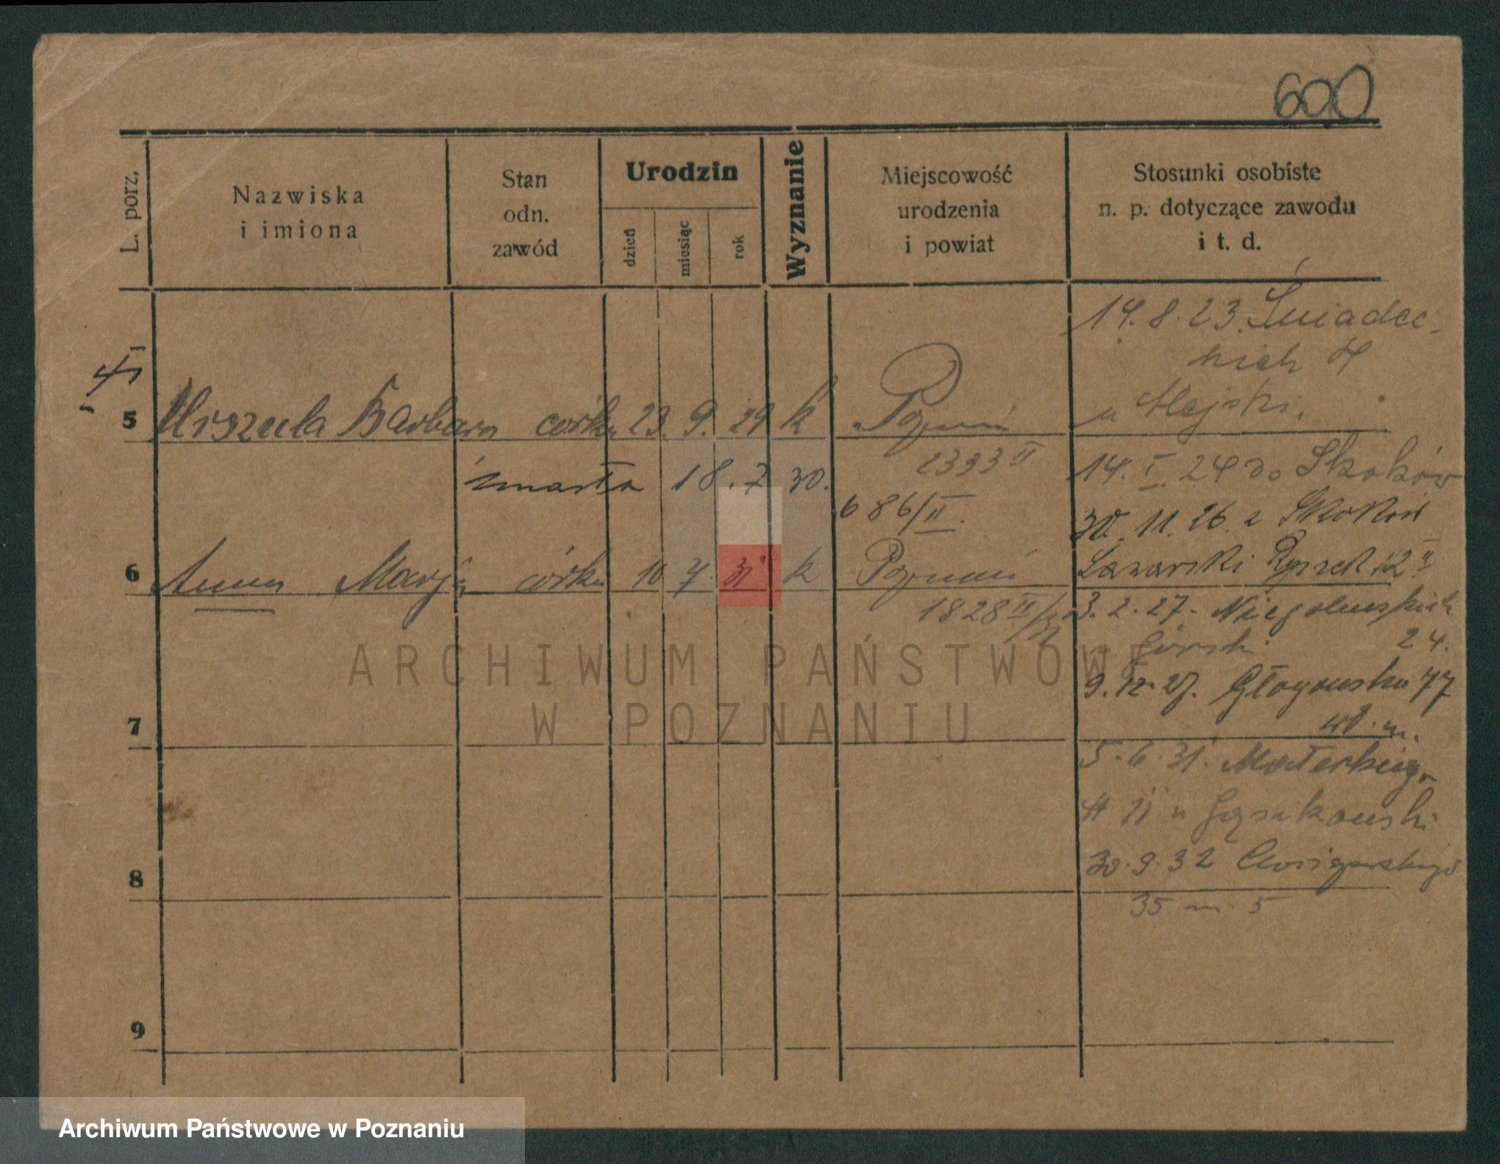 600
L. porz.
Nazwiska i imiona
Stan odn. zawód
Urodzin
dzień
miesiąc
rok
Wyznanie
Miejscowość urodzenia i powiat
Stosunki osobiste n. p. dotyczące zawodu i t. d.
14. 8. 23. Śniadec-
kich
5 Urszula Barbara córka 23. 9. 29 k Poznań
2333 II
zmarła 18. 7 30.
686/II.
14. I. 24 do Skoków
30. 11. 26. z Skoków
6 Anna Marja córka 10 7 31 k Poznań
Łazarski Rynek 12 II
1828 II
3. 2. 27. Niegolewskich
24.
u Górski
9. 12. 27. Głogowska 77
7
5. 6. 31. Małeckiego
30. 9. 32
8
35 m. 5
9
ARCHIWUM PAŃSTWOWE
W POZNANIU
Archiwum Państwowe w Poznaniu